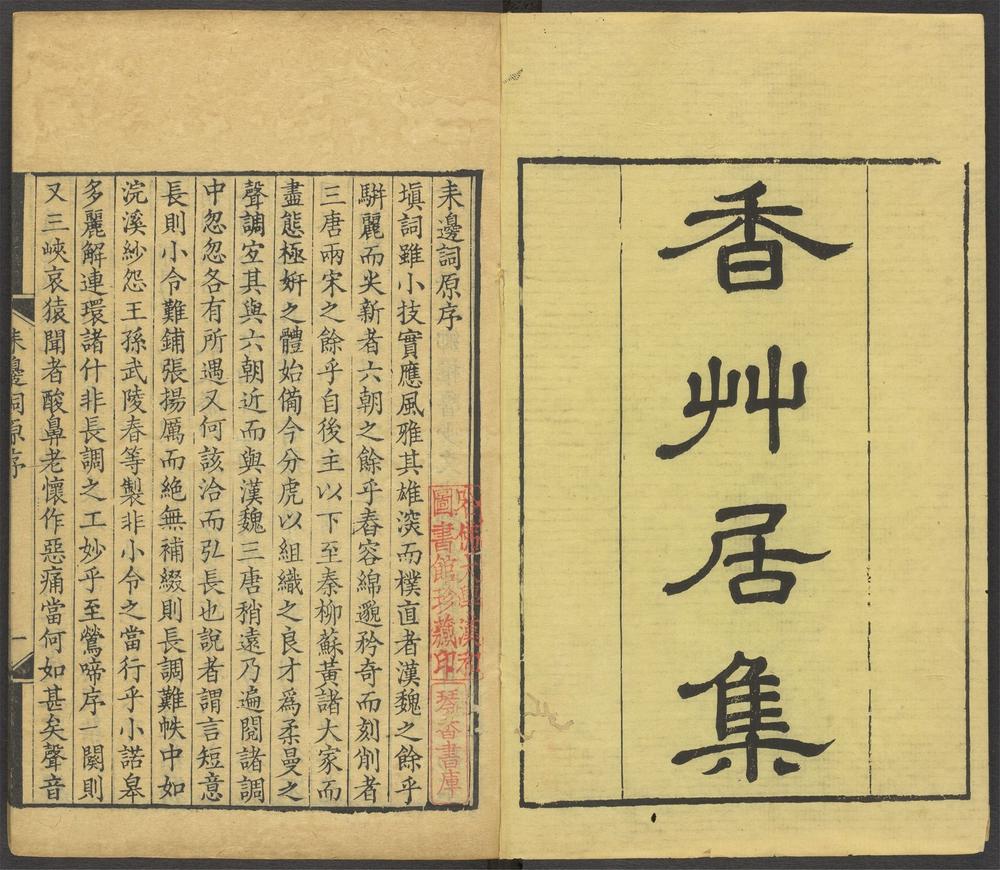 香艸居集
耒邊詞原序
塡詞雖小技實應風雅其雄深而樸直者漢魏之餘乎
騈麗而尖新者六朝之餘乎舂容綿邈矜奇而刻削者
三唐兩宋之餘乎自後主以下至秦柳蘇黃諸大家而
盡態極姸之體始備今分虎以組織之良才爲柔曼之
聲調宐其與六朝近而與漢魏三唐稍遠乃遍閱諸調
中忽忽各有所遇又何該洽而弘長也說者謂言短意
長則小令難鋪張揚厲而絶無補綴則長調難帙中如
浣溪紗怨王孫武陵春等製非小令之當行乎小諾臯
多麗解連環諸什非長調之工妙乎至鶯啼序一闋則
又三峽哀猿聞者酸鼻老懷作惡痛當何如甚矣聲音
耒邊詞原序
一
哈佛大學漢和
圖書館珍藏印
琴香書庫